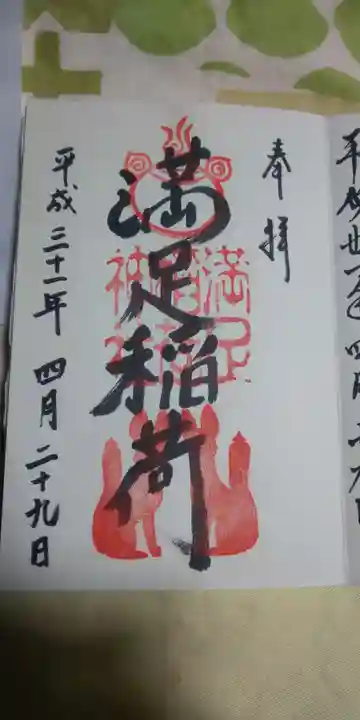 平成卅一年四月二十九日
奉拝
満足稲荷
満足
稲荷
神社
平成三十一年 四月二十九日